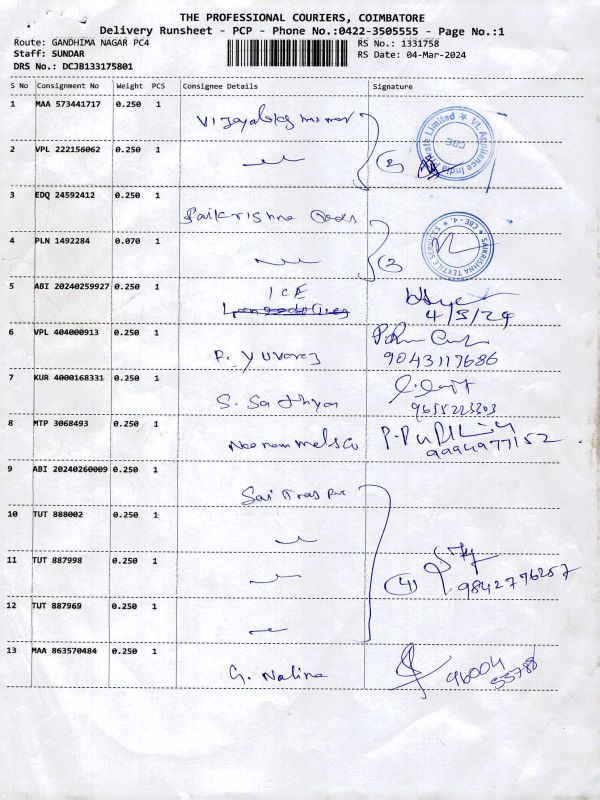 THE PROFESSIONAL COURIERS, COIMBATORE
Delivery Runsheet - PCP - Phone No.:0422-3505555 - Page No.:1
Route: GANDHIMA NAGAR PC4 RS No.: 1331758
Staff: SUNDAR RS Date: 04-Mar-2024
DRS No.: DCJB133175801
S No Consignment No Weight PCS Consignee Details Signature
1 MAA 573441717 0.250 1
Private Limited ★ VL Appliance India
CBE
2 VPL 222156062 0.250 1 (2)
3 EDQ 24592412 0.250 1
Saikrishna
SAIKRISHNA TEXTILE SERVICES ★ CBE-4. ★
4 PLN 1492284 0.070 1
5 ABI 20240259927 0.250 1 ICE
4/3/24
6 VPL 404000913 0.250 1
R. Yuvaraj 9043117686
7 KUR 4000168331 0.250 1
S. Sathya
8 MTP 3068493 0.250 1
9994977152
9 ABI 20240260009 0.250 1
Sai
10 TUT 888002 0.250 1
11 TUT 887998 0.250 1
(4) 9842776257
12 TUT 887969 0.250 1
13 MAA 863570484 0.250 1
G. Nalina 96004
53788